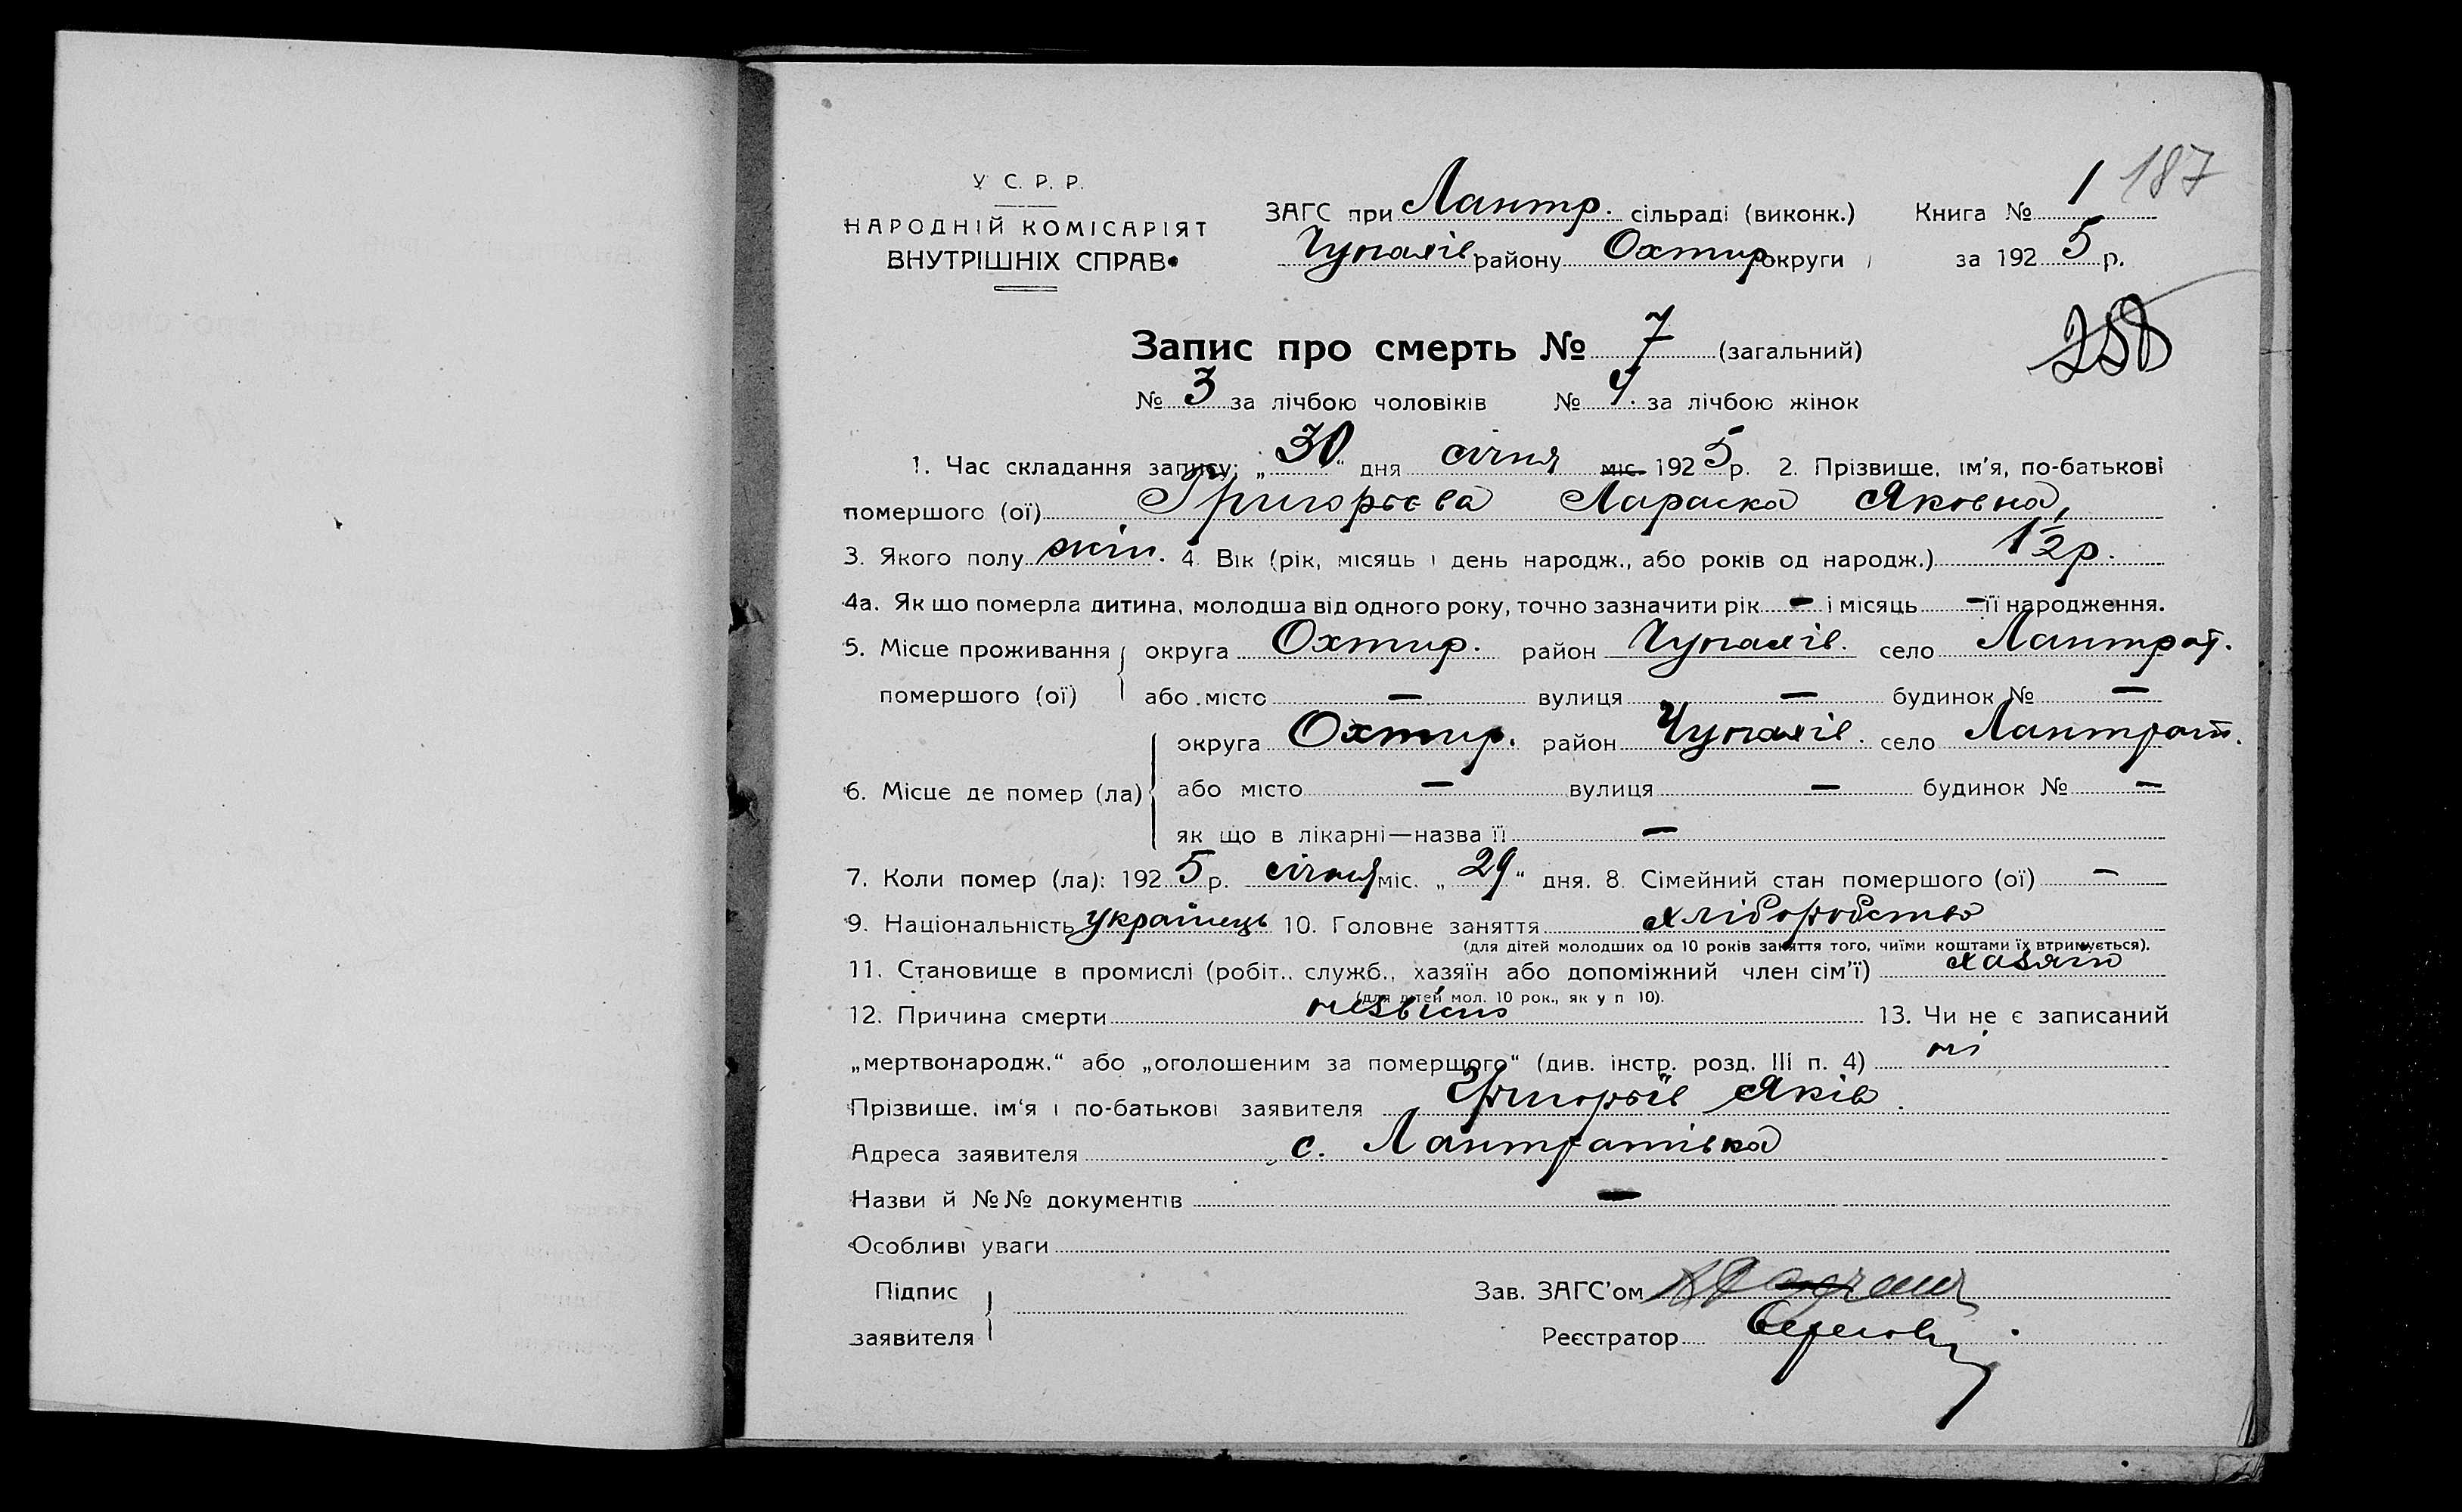 187
У. С. Р. Р.
НАРОДНІЙ КОМІСАРІЯТ
ВНУТРІШНІХ СПРАВ
ЗАГС при Лантр. сільраді (виконк.) Книга № 1
Чупахів. району Охтир округи за 1925 р.
258
Запис про смерть № 7 (загальний)
№ 3 за лічбою чоловіків № 4. за лічбою жінок
1. Час складання запису: „30“ дня січня міс. 1925 р. 2. Прізвище, ім'я, по-батькові
помершого (ої) Григорьєва Параска Яковна,
3. Якого полу жін. 4. Вік (рік, місяць і день народж., або років од народж.) 1 1/2 р.
4а. Як що померла дитина, молодша від одного року, точно зазначити рік — і місяць — її народження.
5. Місце проживання помершого (ої) округа Охтир. район Чупахів. село Лантрат.
або місто — вулиця — будинок № —
6. Місце де помер (ла) округа Охтир. район Чупахів. село Лантрат.
або місто — вулиця — будинок № —
як що в лікарні—назва її —
7. Коли помер (ла): 1925 р. січня міс. „29“ дня. 8. Сімейний стан помершого (ої) —
9. Національність українець 10. Головне заняття хліборобство
(для дітей молодших од 10 років заняття того, чиїми коштами їх втримується).
11. Становище в промислі (робіт., служб., хазяїн або допоміжний член сім'ї) хазяїн
(для дітей мол. 10 рок., як у п 10).
12. Причина смерти незвісно 13. Чи не є записаний
„мертвонародж.“ або „оголошеним за помершого“ (див. інстр. розд. III п. 4) ні
Прізвище, ім'я і по-батькові заявителя Григорьїв Яків.
Адреса заявителя с. Лантратівка
Назви й №№ документів —
Особливі уваги
Підпис заявителя
Зав. ЗАГС'ом
Реєстратор